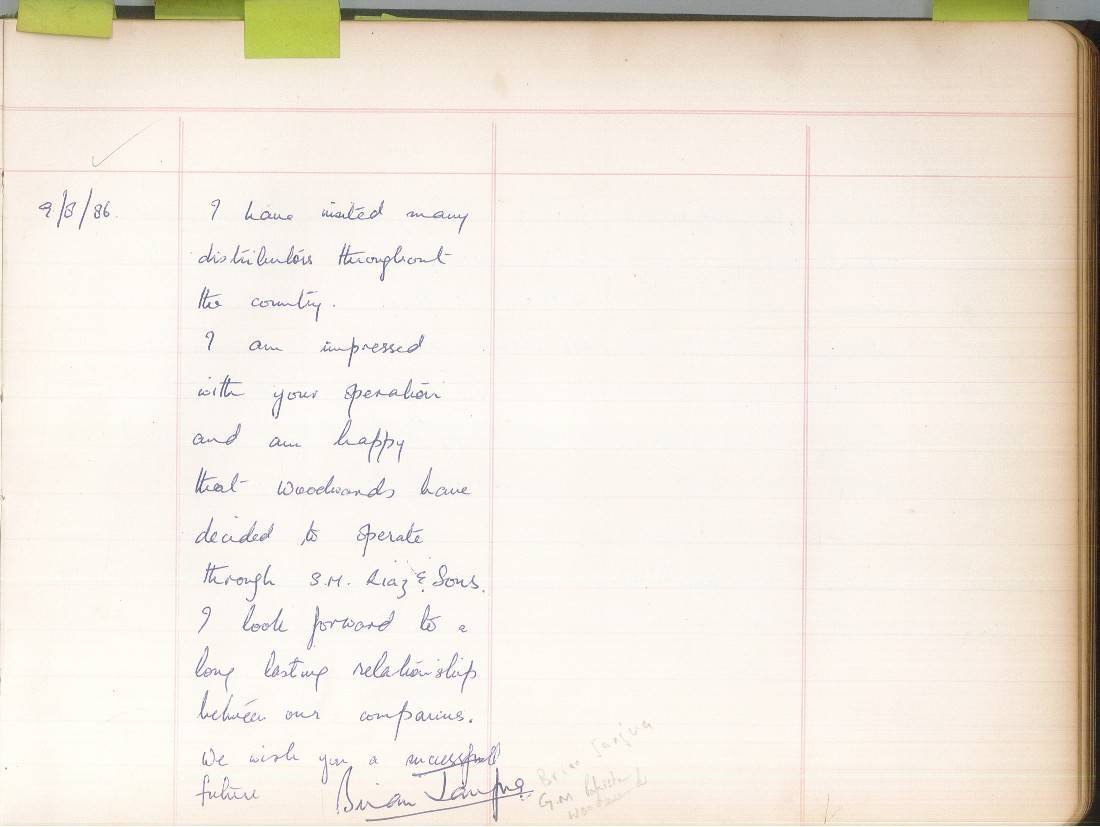 9/8/86.
I have visited many
distributors throughout
the country.
I am impressed
with your operation
and am happy
that Woodwards have
decided to operate
through S.M. Riaz & Sons.
I look forward to a
long lasting relationship
between our companies.
We wish you a successful
future
Brian Janjua
Brian Janjua
G.M.